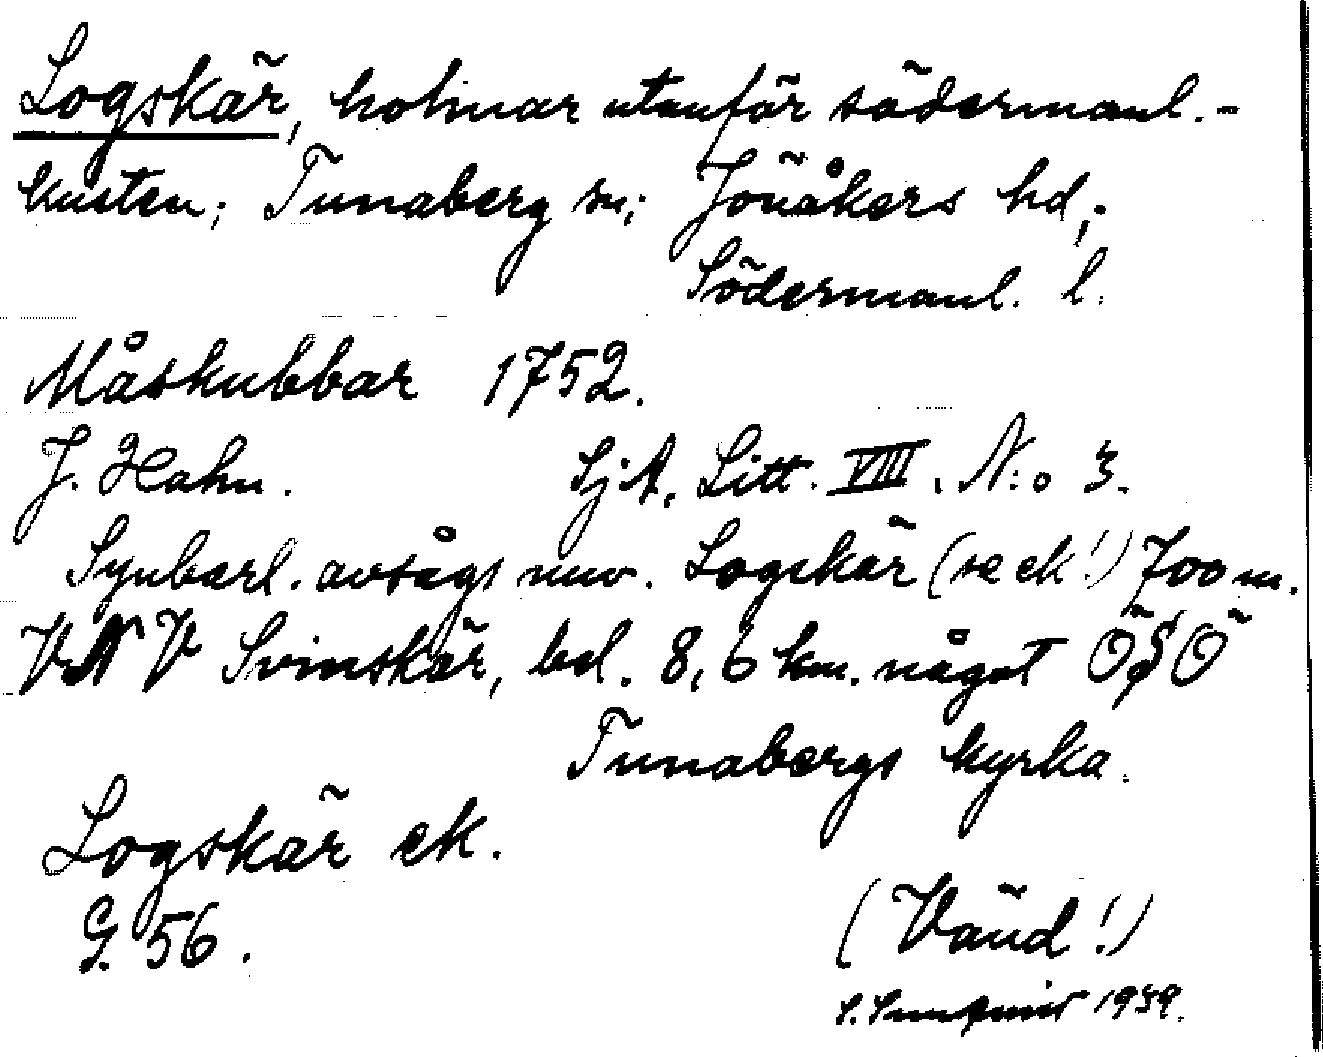 Logskär, holmar utanför södermanl.-
kusten; Tunaberg sn; Jönåkers hd,;
Södermanl. l.
Måskubbar 1752.
J. Hahn. SjA. Litt. VIII. N:o 3.
Synbarl. avsågs nuv. Logskär (se ek!) 700 m.
VNV Svinskär, bel. 8,6 km. något ÖSÖ
Tunabergs kyrka.
Logskär ek.
G. 56.
(Vänd!)
S. 1939.